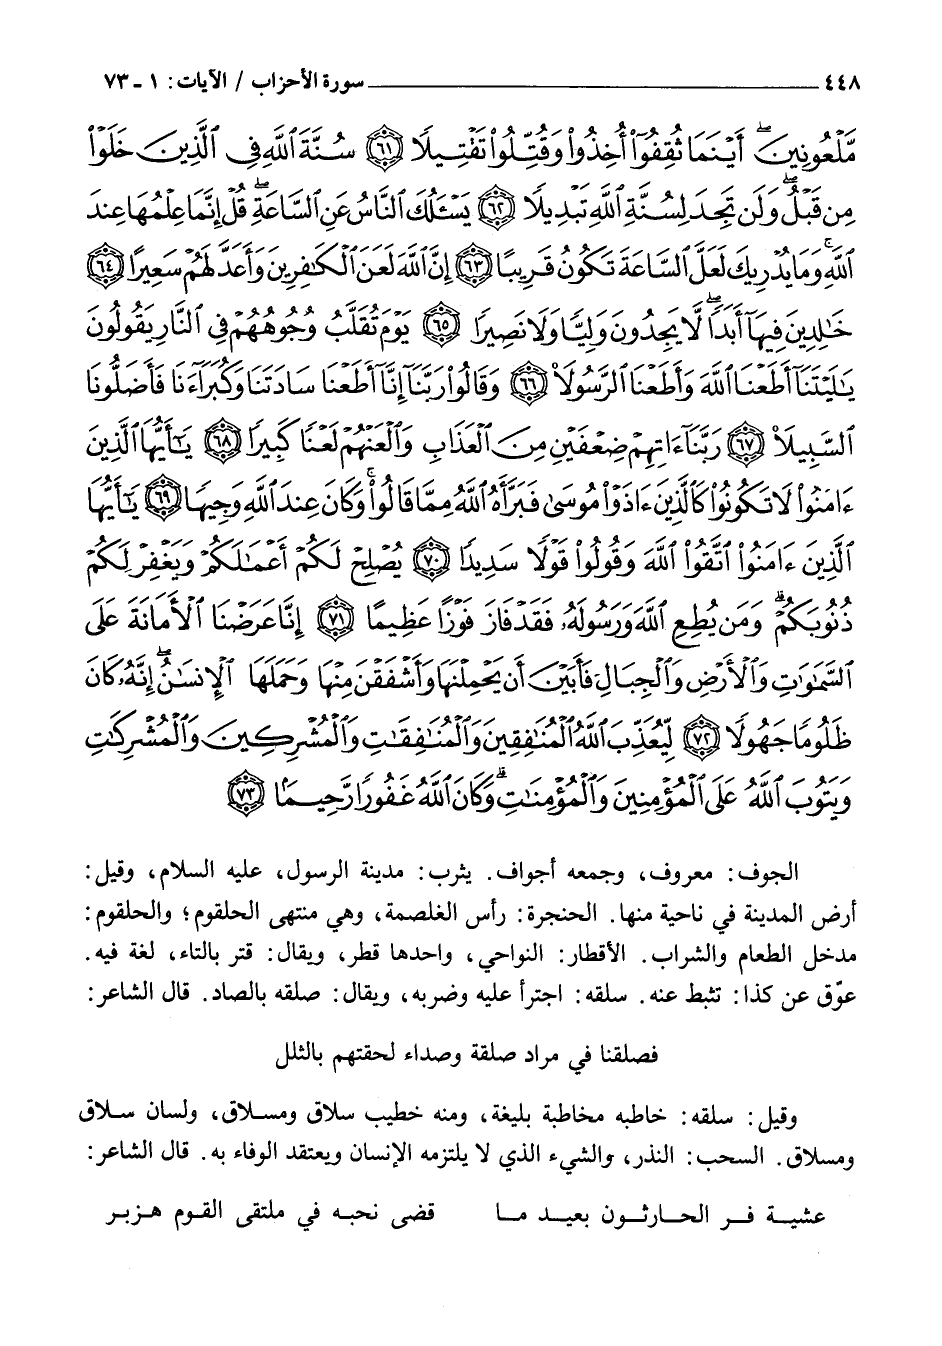 ٤٤٨ سورة الأحزاب / الآيات: ١ ـ ٧٣
مَّلْعُونِينَ ۖ أَيْنَمَا ثُقِفُوٓا۟ أُخِذُوا۟ وَقُتِّلُوا۟ تَقْتِيلًا ﴿٦١﴾ سُنَّةَ ٱللَّهِ فِى ٱلَّذِينَ خَلَوْا۟
مِن قَبْلُ ۖ وَلَن تَجِدَ لِسُنَّةِ ٱللَّهِ تَبْدِيلًا ﴿٦٢﴾ يَسْـَٔلُكَ ٱلنَّاسُ عَنِ ٱلسَّاعَةِ ۖ قُلْ إِنَّمَا عِلْمُهَا عِندَ
ٱللَّهِ ۚ وَمَا يُدْرِيكَ لَعَلَّ ٱلسَّاعَةَ تَكُونُ قَرِيبًا ﴿٦٣﴾ إِنَّ ٱللَّهَ لَعَنَ ٱلْكَـٰفِرِينَ وَأَعَدَّ لَهُمْ سَعِيرًا ﴿٦٤﴾
خَـٰلِدِينَ فِيهَآ أَبَدًا ۖ لَّا يَجِدُونَ وَلِيًّا وَلَا نَصِيرًا ﴿٦٥﴾ يَوْمَ تُقَلَّبُ وُجُوهُهُمْ فِى ٱلنَّارِ يَقُولُونَ
يَـٰلَيْتَنَآ أَطَعْنَا ٱللَّهَ وَأَطَعْنَا ٱلرَّسُولَا۠ ﴿٦٦﴾ وَقَالُوا۟ رَبَّنَآ إِنَّآ أَطَعْنَا سَادَتَنَا وَكُبَرَآءَنَا فَأَضَلُّونَا
ٱلسَّبِيلَا۠ ﴿٦٧﴾ رَبَّنَآ ءَاتِهِمْ ضِعْفَيْنِ مِنَ ٱلْعَذَابِ وَٱلْعَنْهُمْ لَعْنًا كَبِيرًا ﴿٦٨﴾ يَـٰٓأَيُّهَا ٱلَّذِينَ
ءَامَنُوا۟ لَا تَكُونُوا۟ كَٱلَّذِينَ ءَاذَوْا۟ مُوسَىٰ فَبَرَّأَهُ ٱللَّهُ مِمَّا قَالُوا۟ ۚ وَكَانَ عِندَ ٱللَّهِ وَجِيهًا ﴿٦٩﴾ يَـٰٓأَيُّهَا
ٱلَّذِينَ ءَامَنُوا۟ ٱتَّقُوا۟ ٱللَّهَ وَقُولُوا۟ قَوْلًا سَدِيدًا ﴿٧٠﴾ يُصْلِحْ لَكُمْ أَعْمَـٰلَكُمْ وَيَغْفِرْ لَكُمْ
ذُنُوبَكُمْ ۗ وَمَن يُطِعِ ٱللَّهَ وَرَسُولَهُۥ فَقَدْ فَازَ فَوْزًا عَظِيمًا ﴿٧١﴾ إِنَّا عَرَضْنَا ٱلْأَمَانَةَ عَلَى
ٱلسَّمَـٰوَٰتِ وَٱلْأَرْضِ وَٱلْجِبَالِ فَأَبَيْنَ أَن يَحْمِلْنَهَا وَأَشْفَقْنَ مِنْهَا وَحَمَلَهَا ٱلْإِنسَـٰنُ ۖ إِنَّهُۥ كَانَ
ظَلُومًا جَهُولًا ﴿٧٢﴾ لِّيُعَذِّبَ ٱللَّهُ ٱلْمُنَـٰفِقِينَ وَٱلْمُنَـٰفِقَـٰتِ وَٱلْمُشْرِكِينَ وَٱلْمُشْرِكَـٰتِ
وَيَتُوبَ ٱللَّهُ عَلَى ٱلْمُؤْمِنِينَ وَٱلْمُؤْمِنَـٰتِ ۗ وَكَانَ ٱللَّهُ غَفُورًا رَّحِيمًۢا ﴿٧٣﴾
الجوف: معروف، وجمعه أجواف. يثرب: مدينة الرسول، عليه السلام، وقيل:
أرض المدينة في ناحية منها. الحنجرة: رأس الغلصمة، وهي منتهى الحلقوم؛ والحلقوم:
مدخل الطعام والشراب. الأقطار: النواحي، واحدها قطر، ويقال: قتر بالتاء، لغة فيه.
عوّق عن كذا: تثبط عنه. سلقه: اجترأ عليه وضربه، ويقال: صلقه بالصاد. قال الشاعر:
فصلقنا في مراد صلقة وصداء لحقتهم بالثلل
وقيل: سلقه: خاطبه مخاطبة بليغة، ومنه خطيب سلاق ومسلاق، ولسان سلاق
ومسلاق. السحب: النذر، والشيء الذي لا يلتزمه الإنسان ويعتقد الوفاء به. قال الشاعر:
عشية فر الحارثون بعيد ما قضى نحبه في ملتقى القوم هزبر